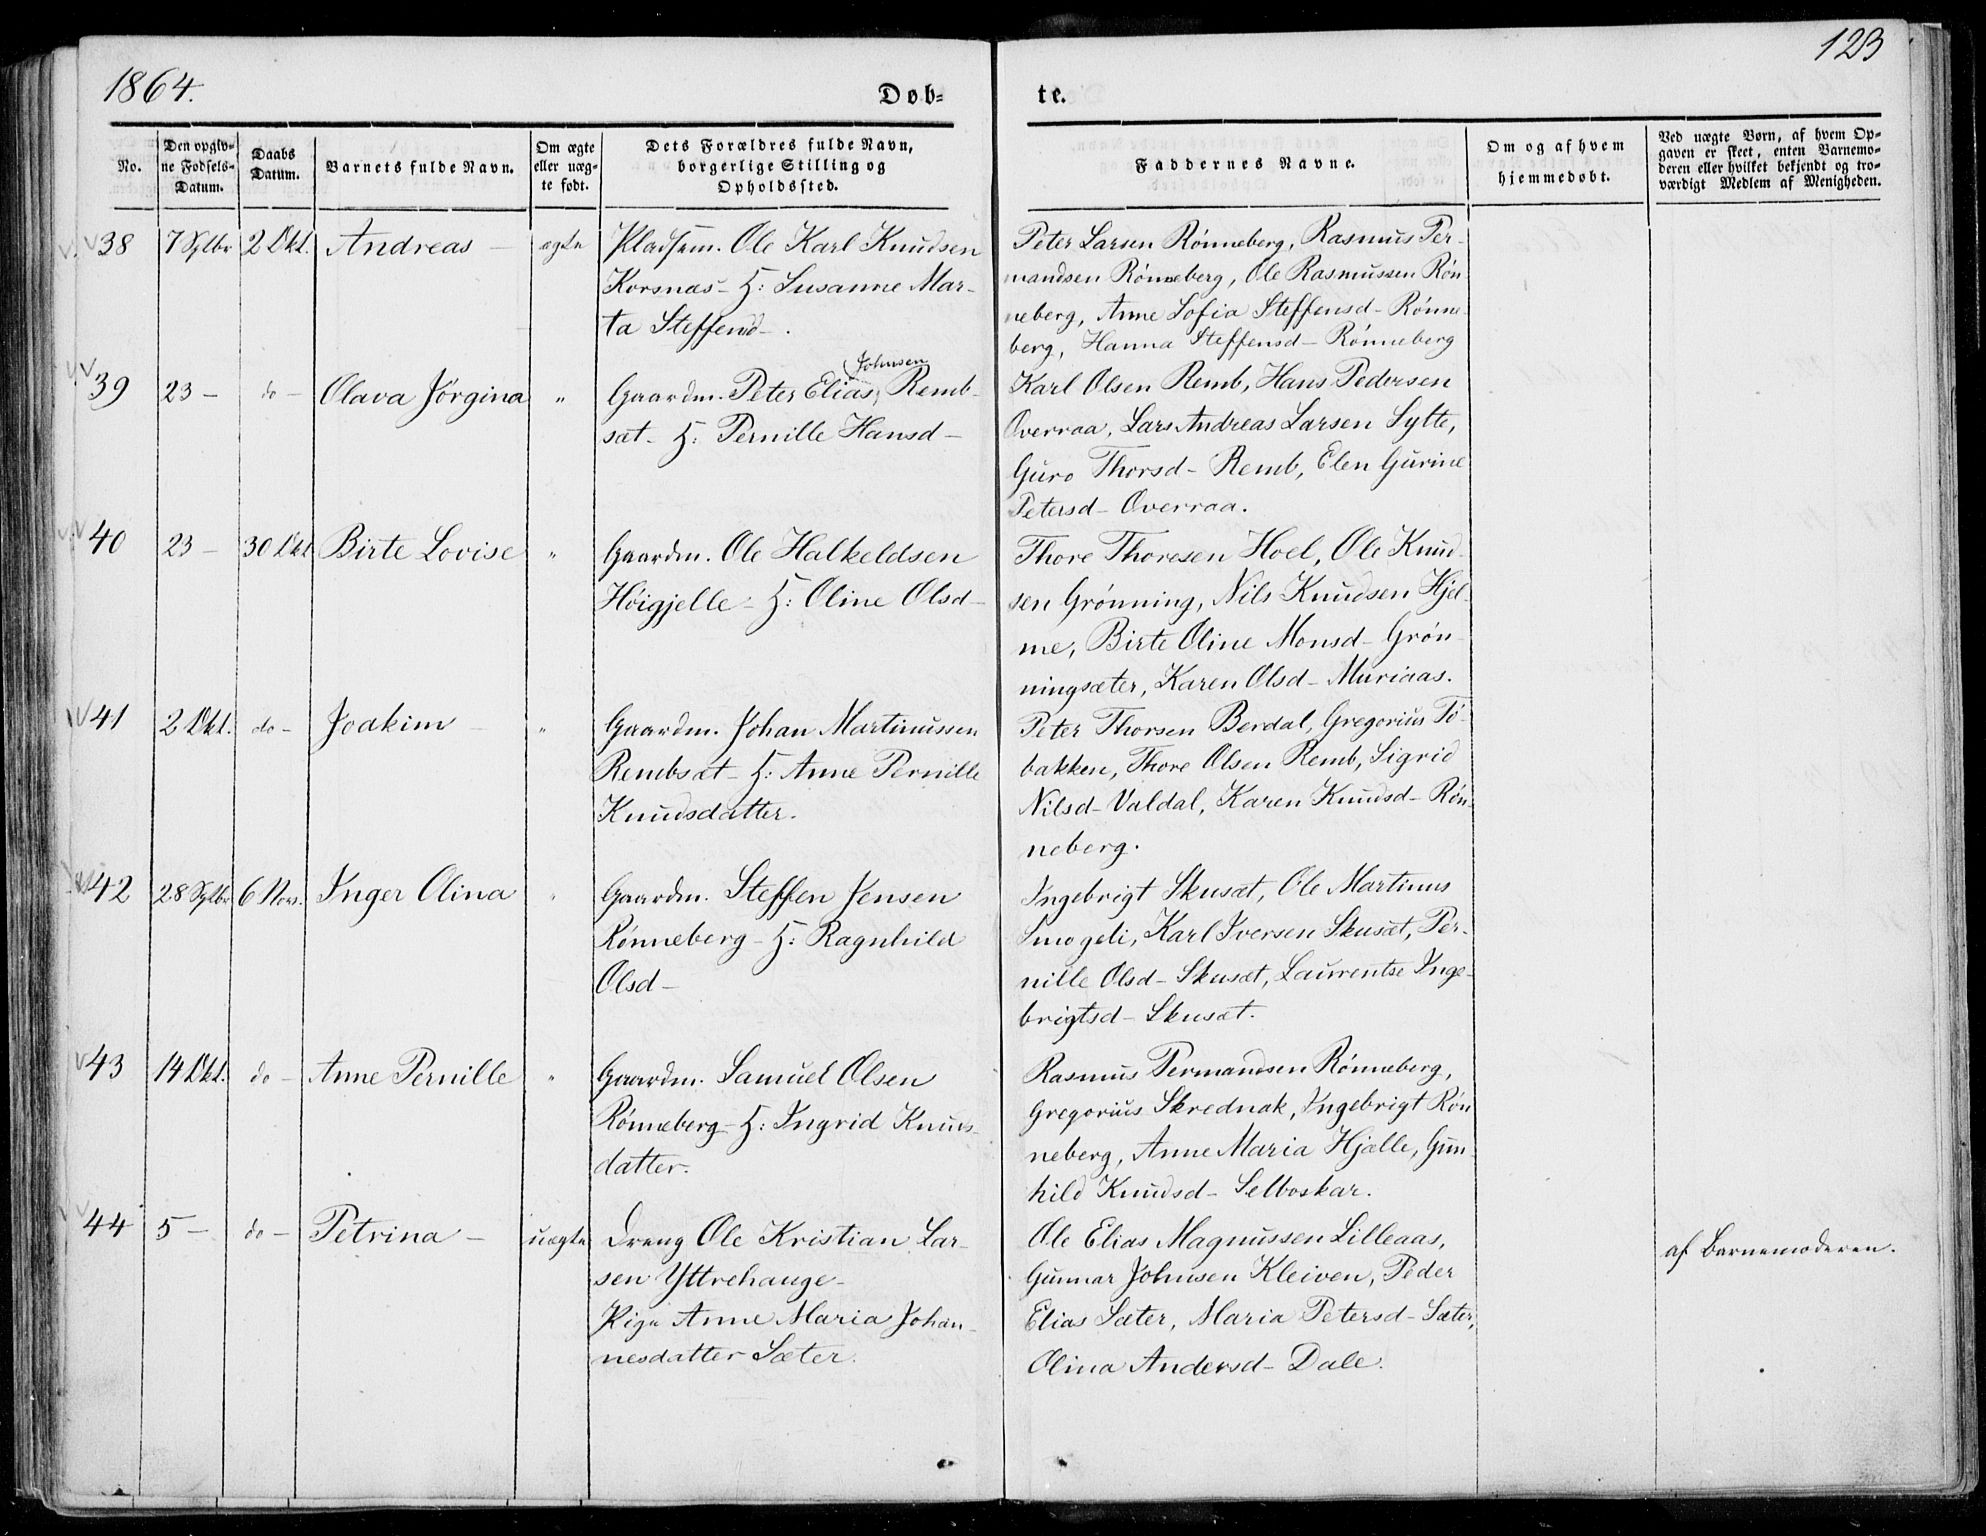 1864.
Døb-
te.
123
No.
Den opgiv-
ne Fødsels-
Datum.
Daabs
Datum.
Barnets fulde Navn.
Om ægte
eller uæg-
te født.
Dets Forældres fulde Navn,
borgerlige Stilling og
Opholdssted.
Faddernes Navne.
Om og af hvem
hjemmedøbt.
Ved uægte Børn, af hvem Op-
gaven er skeet, enten Barnemo-
deren eller hvilket bekjendt og tro-
værdigt Medlem af Menigheden.
38 7 Sptbr 2 Okt. Andreas - ægte
Pladsm. Ole Karl Knudsen
Korsnæs - H: Susanne Mar-
ta Steffensd -.
Peter Larsen Rønneberg, Rasmus Per-
mandsen Rønneberg, Ole Rasmussen Røn-
neberg, Anne Sofia Steffensd - Rønne-
berg, Hanna Steffensd - Rønneberg
39 23 - do - Olava Jørgina "
Johnsen
Gaardm. Peter Elias, Remb-
sæt - H: Pernille Hansd -
Karl Olsen Remb, Hans Pedersen
Overraa, Lars Andreas Larsen Sylte,
Guro Thorsd - Remb, Elen Gurine
Petersd - Overraa.
40 23 - 30 Okt Birte Lovise "
Gaardm. Ole Halkeldsen
Høigjelle - H: Oline Olsd -
Thore Thoresen Hoel, Ole Knud-
sen Grønning, Nils Knudsen Hjel-
me, Birte Oline Monsd - Grøn-
ningsæter, Karen Olsd - Muriaas.
41 2 Okt. do - Joakim - "
Gaardm. Johan Martinussen
Rembsæt - H: Anne Pernille
Knudsdatter.
Peter Thorsen Berdal, Gregorius Tø-
bakken, Thore Olsen Remb, Sigrid
Nilsd - Valdal, Karen Knudsd - Røn-
neberg.
42 28 Sptbr 6 Nov. Inger Olina "
Gaardm. Steffen Jensen
Rønneberg - H: Ragnhild
Olsd -
Ingebrigt Skusæt, Ole Martinus
Smogeli, Karl Iversen Skusæt, Per-
nille Olsd - Skusæt, Laurentse Inge-
brigtsd - Skusæt.
43 14 Okt. do - Anne Pernille "
Gaardm. Samuel Olsen
Rønneberg - H: Ingrid Knuds-
datter.
Rasmus Permandsen Rønneberg,
Gregorius Skrednak, Ingebrigt Røn
neberg, Anne Maria Hjælle, Gun-
hild Knudsd - Selboskar.
44 5 - do - Petrina - uægte
Dreng Ole Kristian Lar-
sen Yttrehauge -
Pige Anne Maria Johan-
nesdatter Sæter.
Ole Elias Magnussen Lilleaas,
Gunnar Johnsen Kleiven, Peder
Elias Sæter, Maria Petersd - Sæter,
Olina Andersd - Dale.
af Barnemoderen.